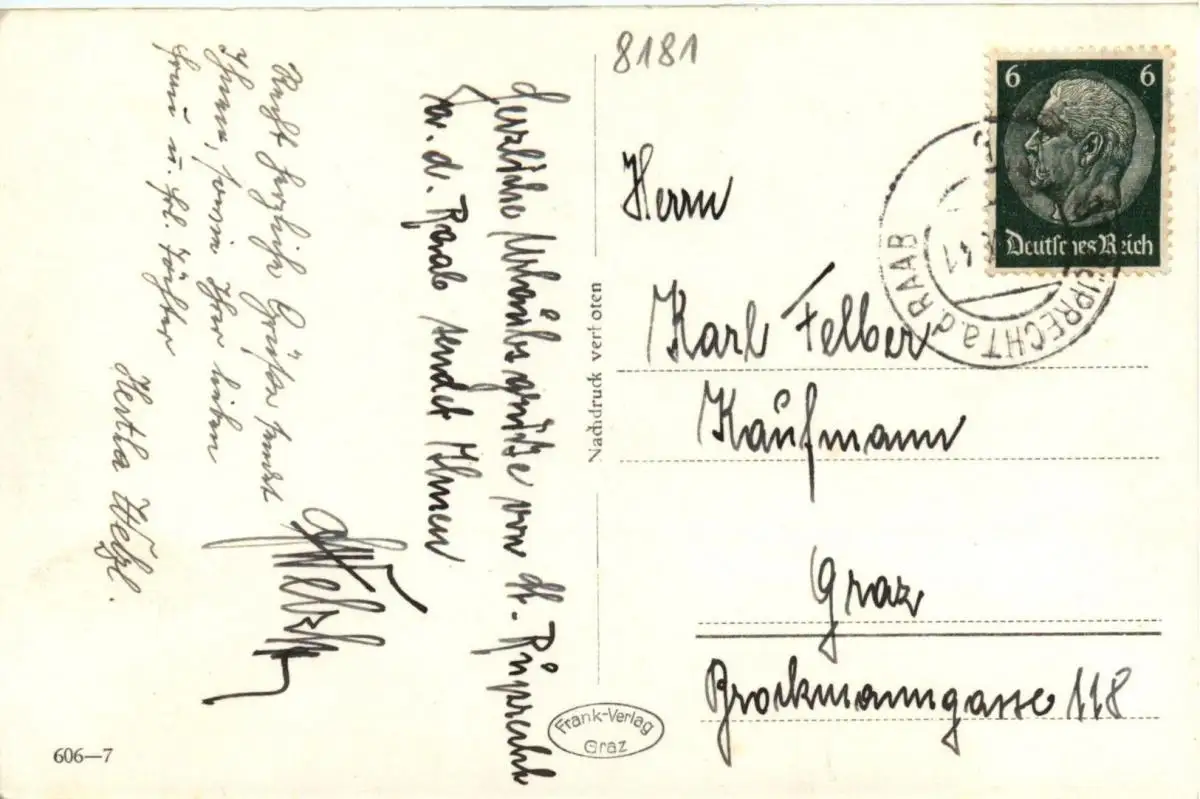 8181
6 6
Deutsches Reich
RUPRECHT a.d. RAAB
41
Herrn
Karl Felber
Kaufmann
Graz
Brockmanngasse 118
Nachdruck verboten
Frank-Verlag
Graz
Herzliche Urlaubsgrüße von St. Ruprecht
a. d. Raab sendet Ihnen
Recht herzliche Grüße sendet
Ihnen, sowie Ihrer lieben
Frau u. Frl. Tochter
Hertha Welzl.
606—7